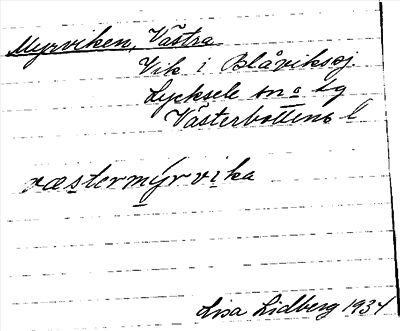 Myrviken, Västra
Vik i Blåviksj.
Lycksele sn o tg
Västerbottens l
væstermýrvika
Lisa Lidberg 1934